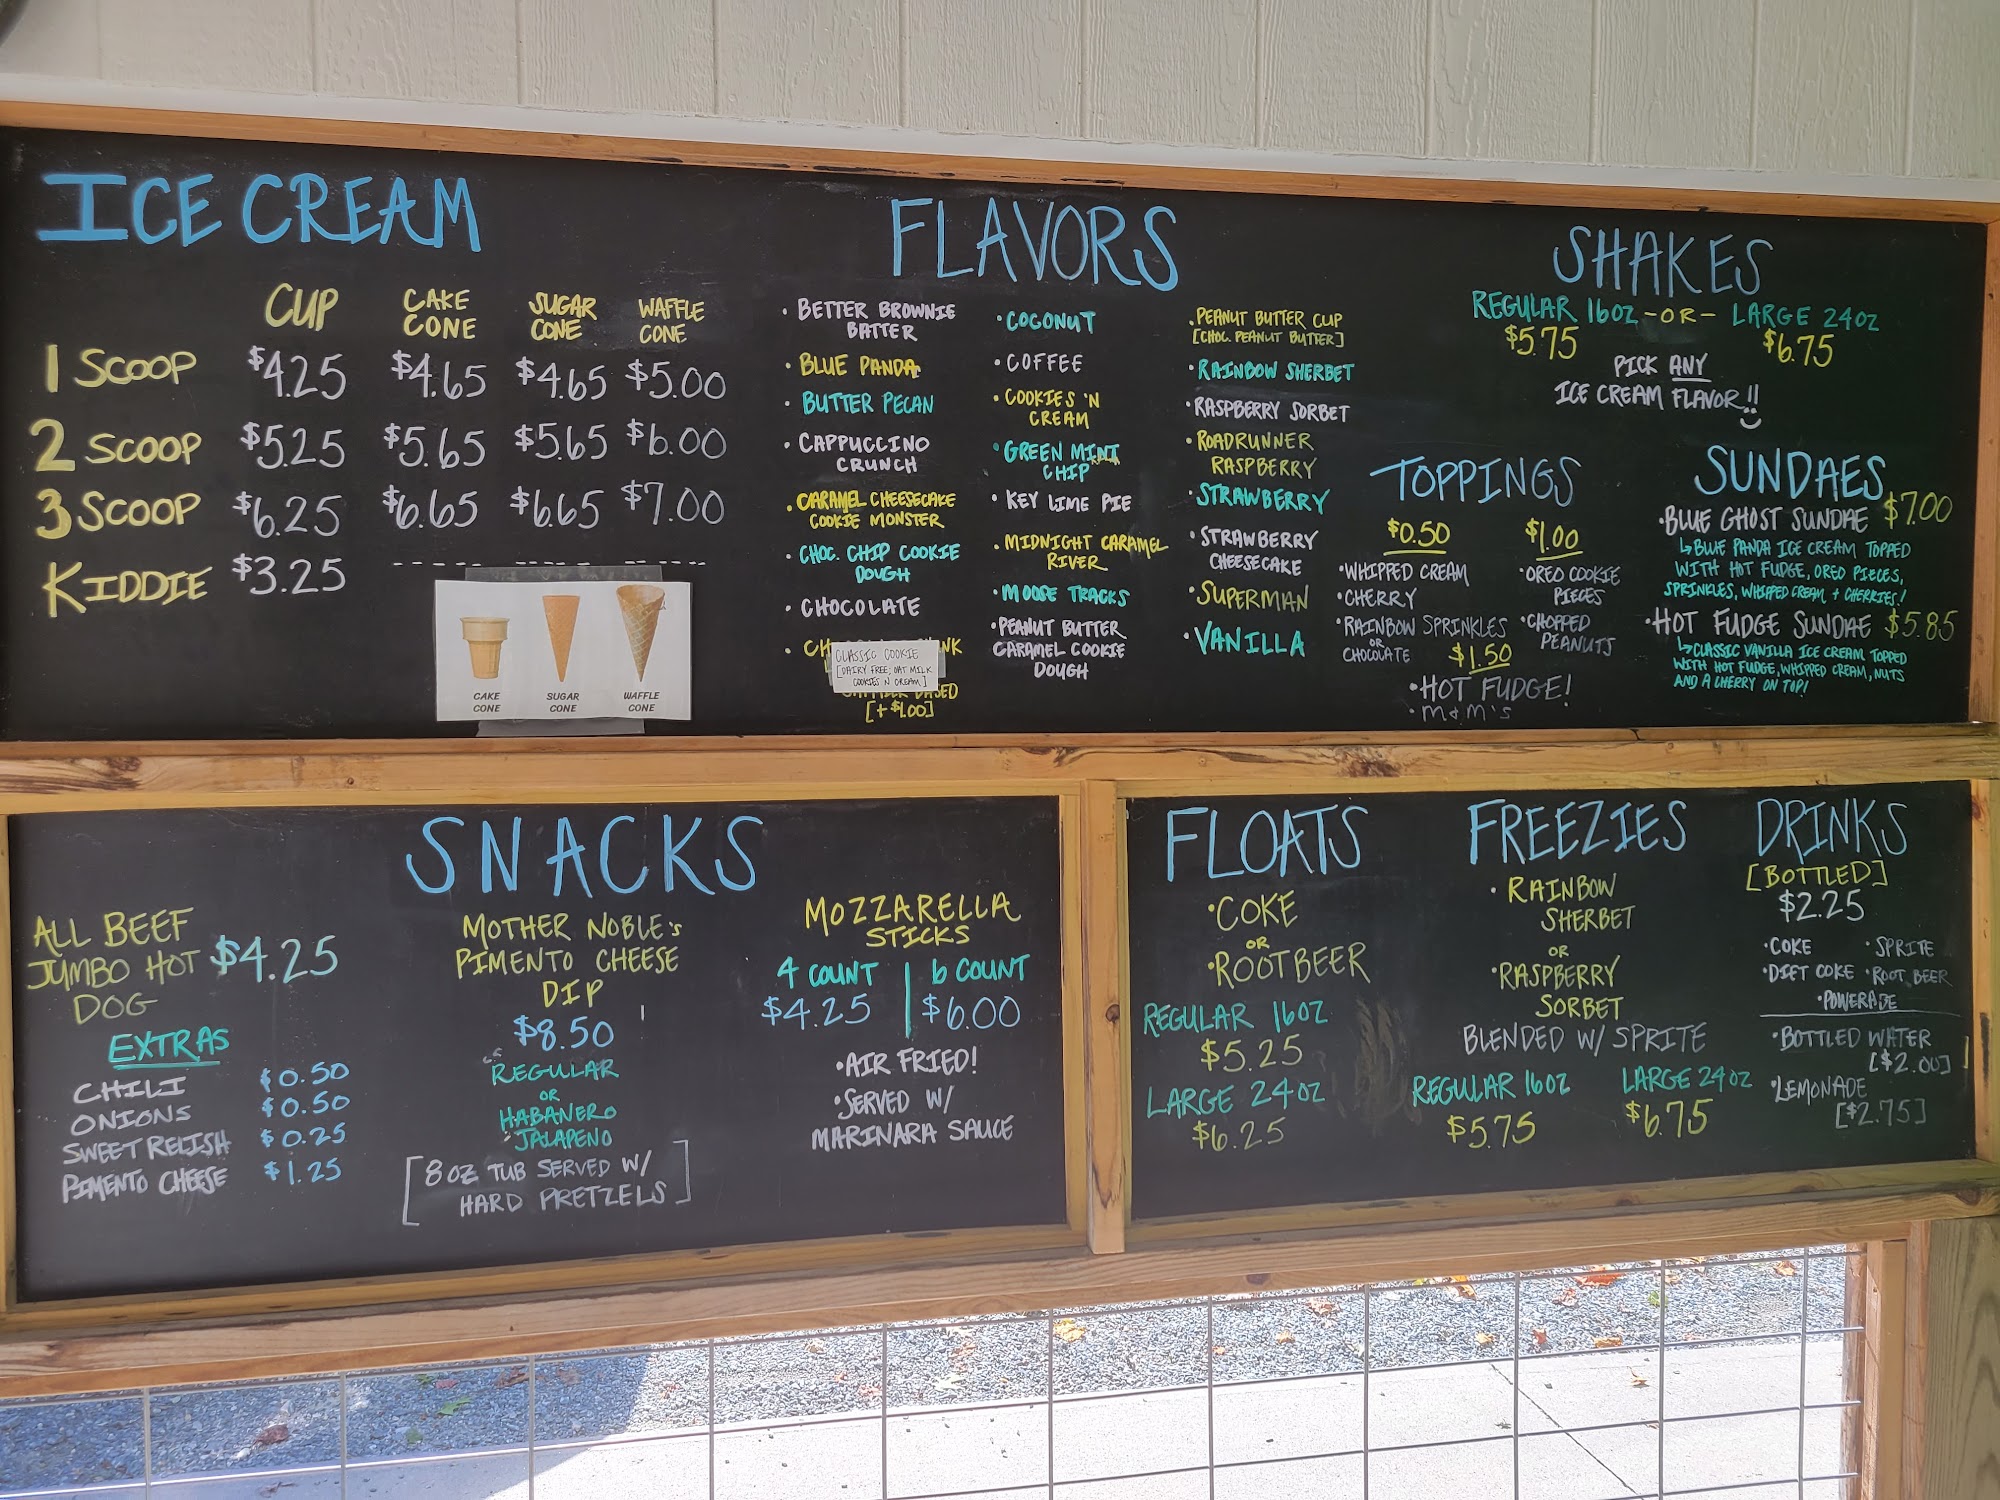 ICE CREAM
CUP CAKE CONE SUGAR CONE WAFFLE CONE
1 SCOOP $4.25 $4.65 $4.65 $5.00
2 SCOOP $5.25 $5.65 $5.65 $6.00
3 SCOOP $6.25 $6.65 $6.65 $7.00
KIDDIE $3.25 ---- ---- ----
CAKE CONE
SUGAR CONE
WAFFLE CONE
FLAVORS
• BETTER BROWNIE
BATTER
• BLUE PANDA
• BUTTER PECAN
• CAPPUCCINO
CRUNCH
• CARAMEL CHEESECAKE
COOKIE MONSTER
• CHOC. CHIP COOKIE
DOUGH
• CHOCOLATE
CLASSIC COOKIE
[DAIRY FREE; OAT MILK
COOKIES N CREAM]
[+$1.00]
• COCONUT
• COFFEE
• COOKIES 'N
CREAM
• GREEN MINT
CHIP
• KEY LIME PIE
• MIDNIGHT CARAMEL
RIVER
• MOOSE TRACKS
• PEANUT BUTTER
CARAMEL COOKIE
DOUGH
• PEANUT BUTTER CUP
[CHOC. PEANUT BUTTER]
• RAINBOW SHERBET
• RASPBERRY SORBET
• ROADRUNNER
RASPBERRY
• STRAWBERRY
• STRAWBERRY
CHEESECAKE
• SUPERMAN
• VANILLA
SHAKES
REGULAR 16OZ -OR- LARGE 24OZ
$5.75 $6.75
PICK ANY
ICE CREAM FLAVOR!!
TOPPINGS
$0.50
• WHIPPED CREAM
• CHERRY
• RAINBOW SPRINKLES
OR
CHOCOLATE
$1.00
• OREO COOKIE
PIECES
• CHOPPED
PEANUTS
$1.50
• HOT FUDGE!
• M&M'S
SUNDAES
• BLUE GHOST SUNDAE $7.00
↳ BLUE PANDA ICE CREAM TOPPED
WITH HOT FUDGE, OREO PIECES,
SPRINKLES, WHIPPED CREAM + CHERRIES!
• HOT FUDGE SUNDAE $5.85
↳ CLASSIC VANILLA ICE CREAM TOPPED
WITH HOT FUDGE, WHIPPED CREAM, NUTS
AND A CHERRY ON TOP!
SNACKS
ALL BEEF
JUMBO HOT $4.25
DOG
EXTRAS
CHILI $0.50
ONIONS $0.50
SWEET RELISH $0.25
PIMENTO CHEESE $1.25
MOTHER NOBLE'S
PIMENTO CHEESE
DIP
$8.50
REGULAR
OR
HABANERO
JALAPENO
[8 OZ TUB SERVED W/
HARD PRETZELS]
MOZZARELLA
STICKS
4 COUNT | 6 COUNT
$4.25 | $6.00
• AIR FRIED!
• SERVED W/
MARINARA SAUCE
FLOATS
• COKE
OR
• ROOTBEER
REGULAR 16OZ
$5.25
LARGE 24OZ
$6.25
FREEZIES
• RAINBOW
SHERBET
OR
• RASPBERRY
SORBET
BLENDED W/ SPRITE
REGULAR 16OZ LARGE 24OZ
$5.75 $6.75
DRINKS
[BOTTLED]
$2.25
• COKE • SPRITE
• DIET COKE • ROOT BEER
• POWERADE
• BOTTLED WATER
[$2.00]
• LEMONADE
[$2.75]